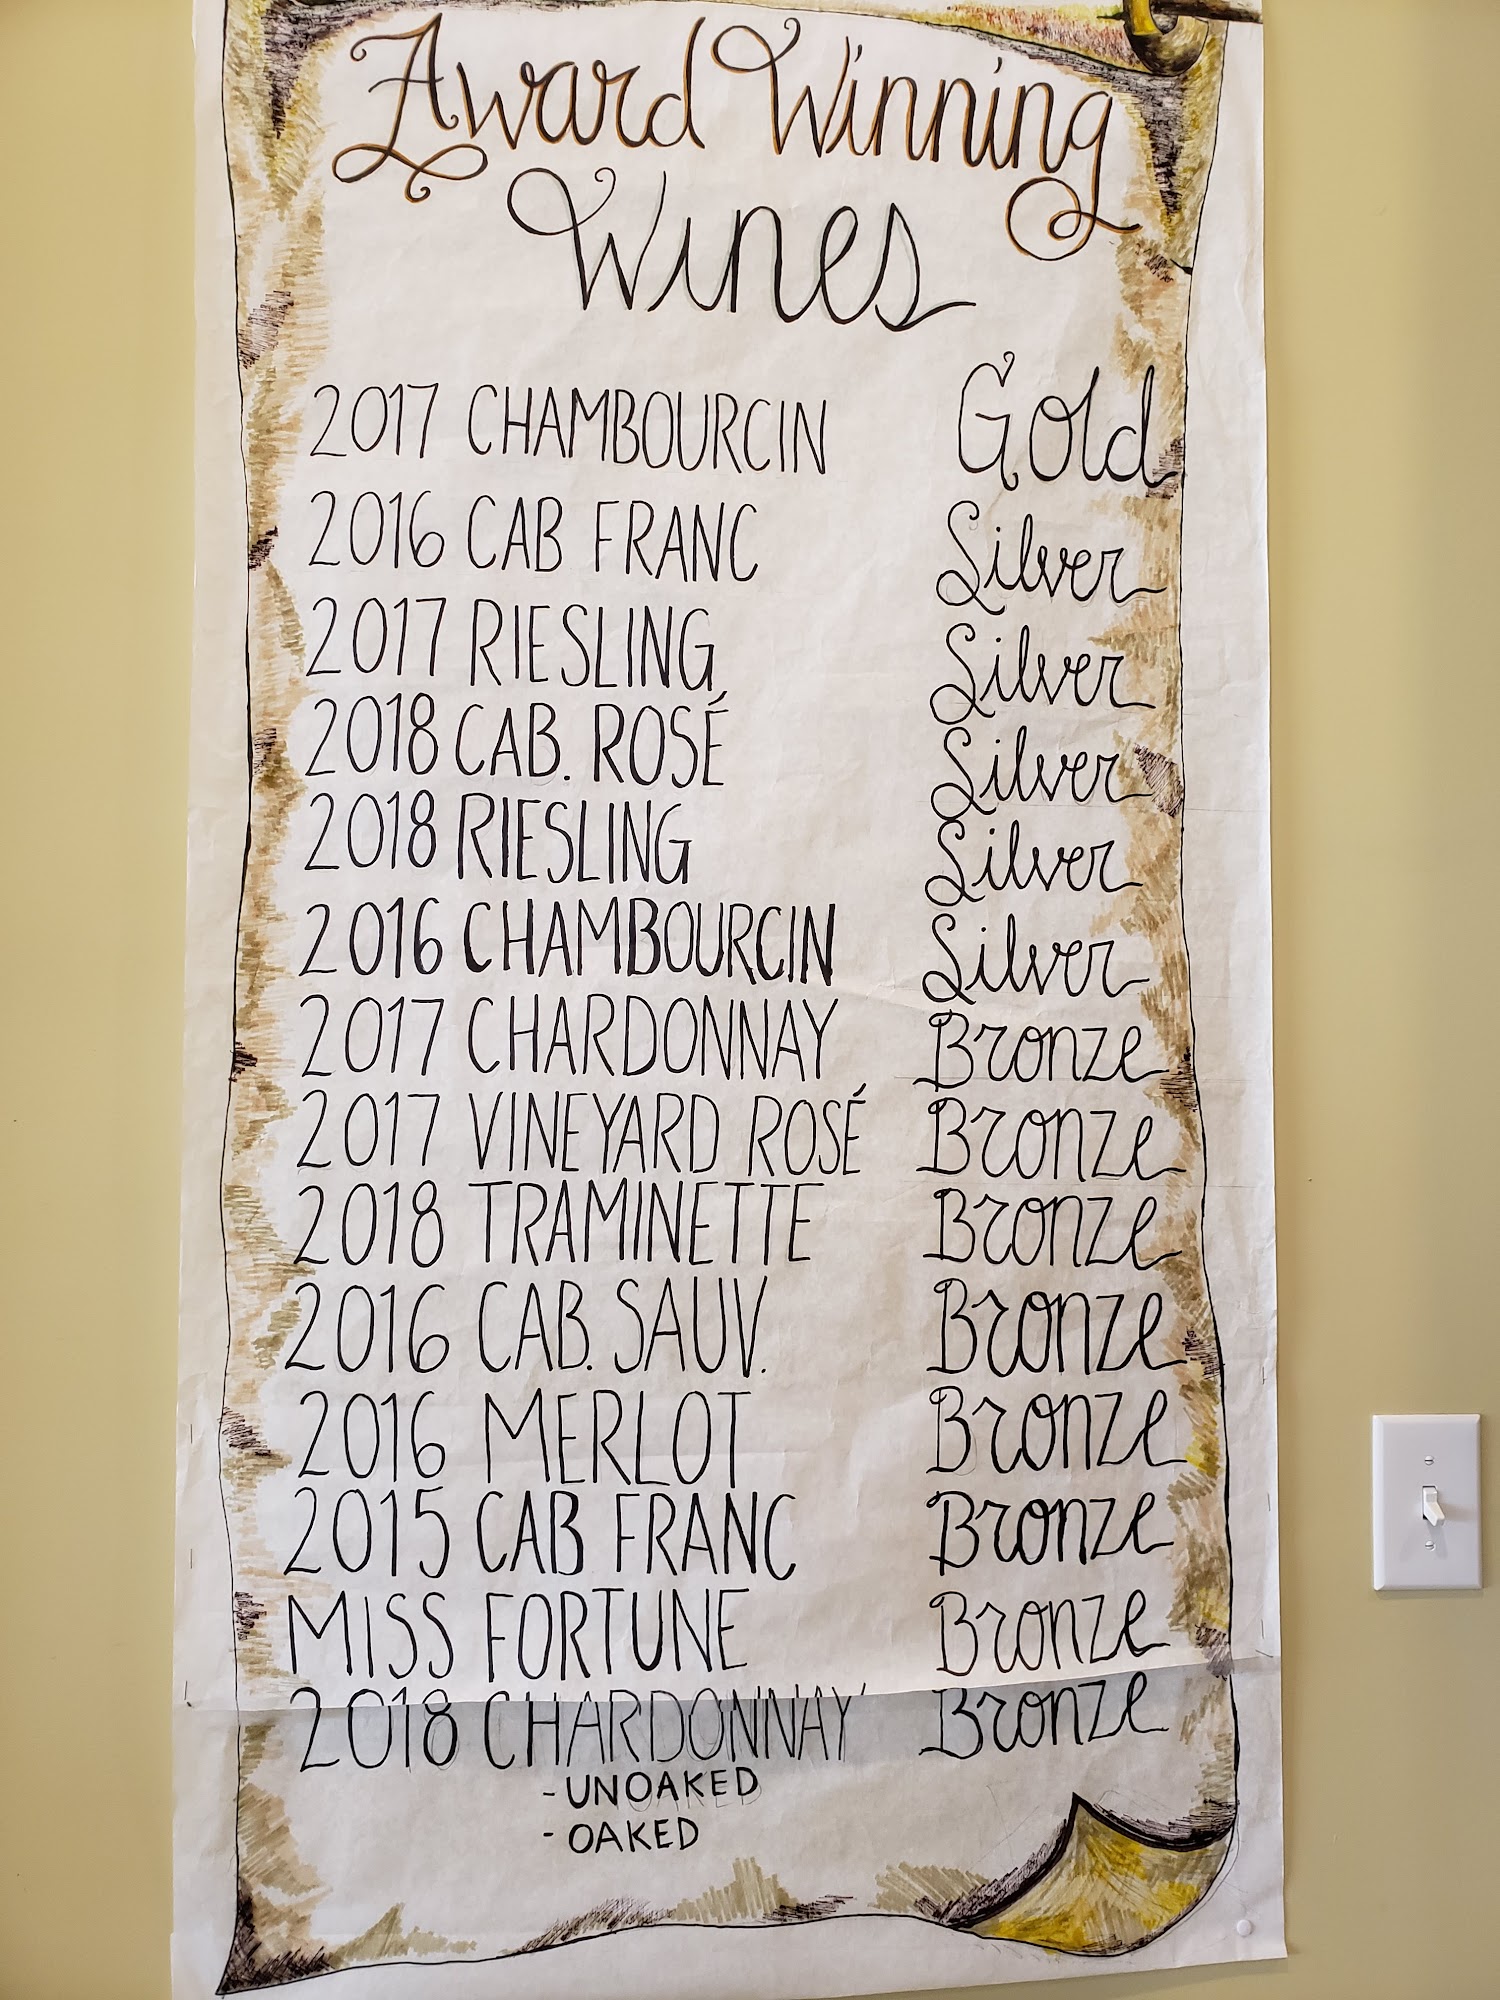 Award Winning
Wines
2017 CHAMBOURCIN Gold
2016 CAB FRANC Silver
2017 RIESLING Silver
2018 CAB. ROSÉ Silver
2018 RIESLING Silver
2016 CHAMBOURCIN Silver
2017 CHARDONNAY Bronze
2017 VINEYARD ROSÉ Bronze
2018 TRAMINETTE Bronze
2016 CAB. SAUV. Bronze
2016 MERLOT Bronze
2015 CAB FRANC Bronze
MISS FORTUNE Bronze
2018 CHARDONNAY Bronze
- UNOAKED
- OAKED